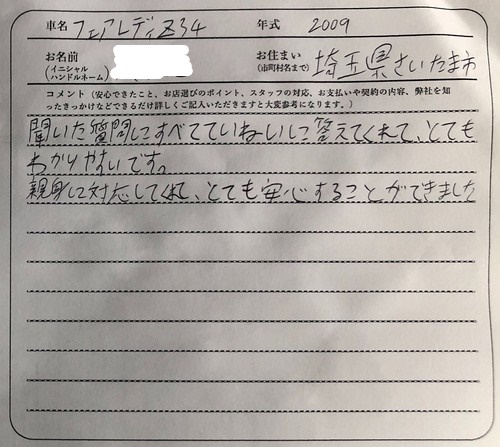 車名 フェアレディZ34 年式 2009
お名前 (イニシャル ハンドルネーム) お住まい (市町村名まで) 埼玉県さいたま市
コメント（安心できたこと、お店選びのポイント、スタッフの対応、お支払いや契約の内容、弊社を知
ったきっかけなどできるだけ詳しくご記入いただきますと大変参考になります。）
聞いた質問にすべてていねいに答えてくれて、とても
わかりやすいです。
親身に対応してくれて、とても安心することができました